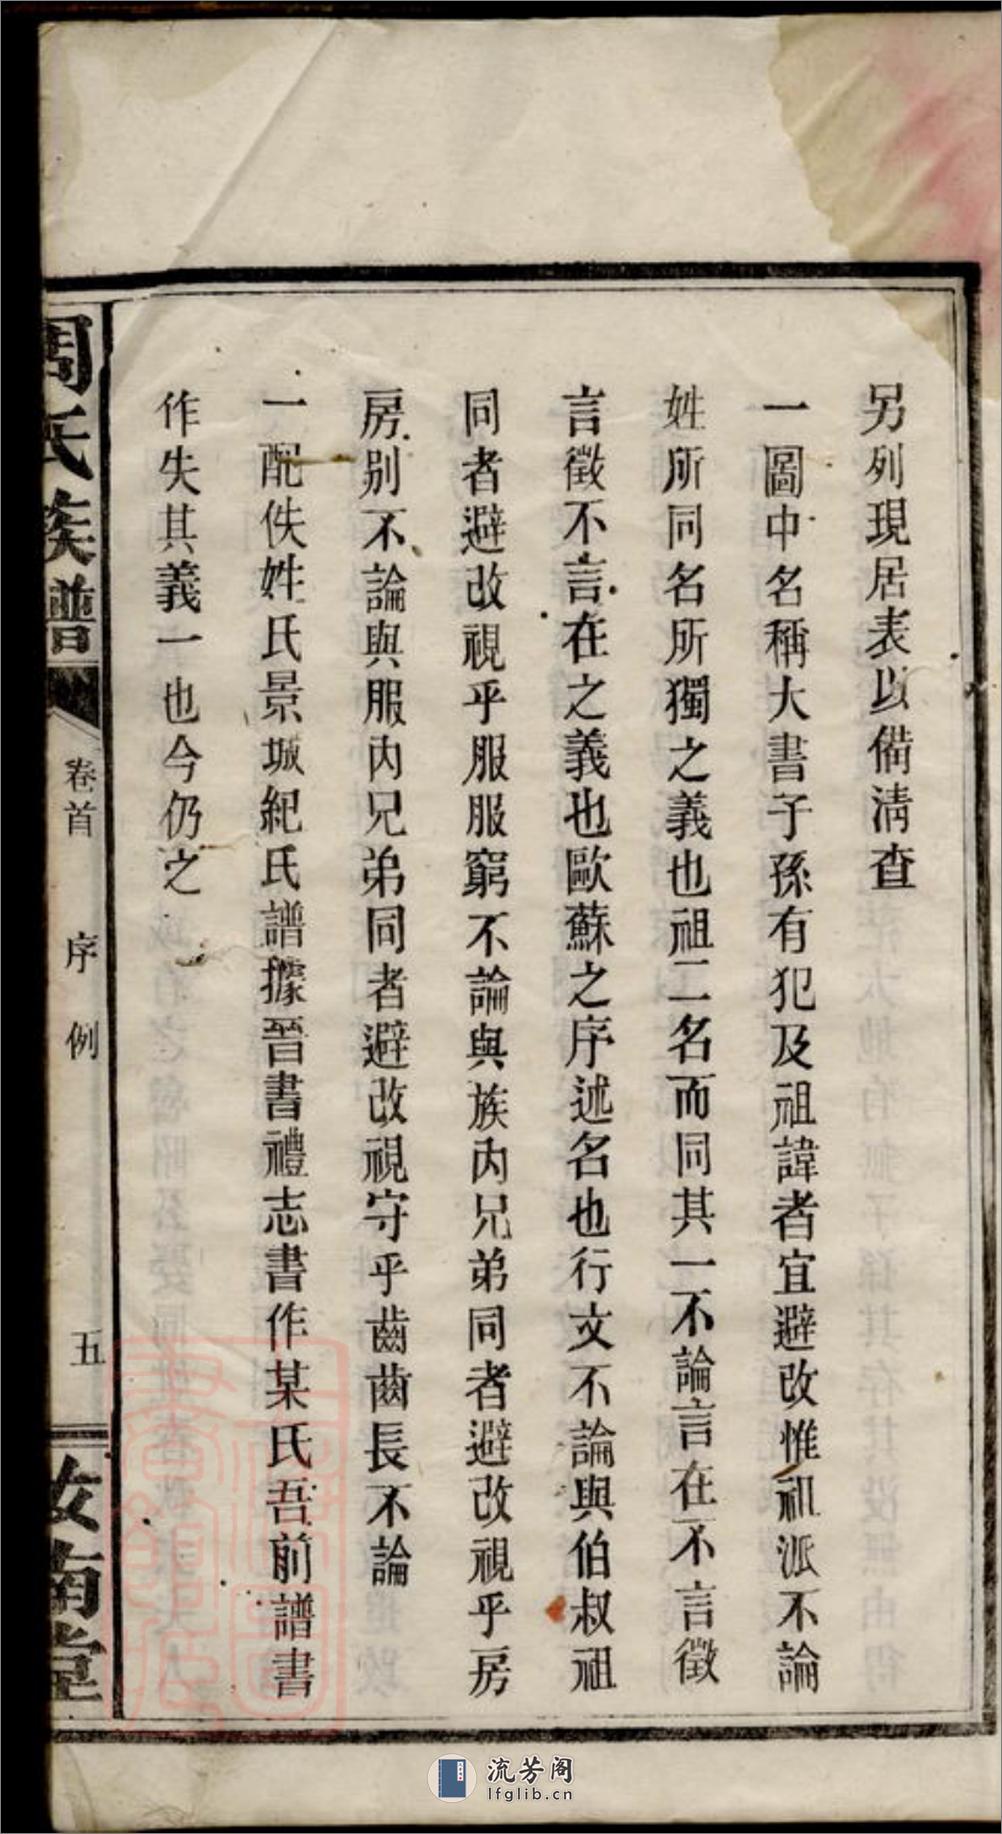 另列現居表以備清查
一圖中名稱大書子孫有犯及祖諱者宜避改惟祖派不論
姓所同名所獨之義也祖二名而同其一不論言在不言徵
言徵不言在之義也歐蘇之序述名也行文不論與伯叔祖
同者避改視乎服服窮不論與族內兄弟同者避改視乎房
房别不論與服內兄弟同者避改視守乎齒齒長不論
一配佚姓氏景城紀氏譜據晉書禮志書作某氏吾前譜書
作失其義一也今仍之
周氏族譜
卷首
序例
五
汝南堂
流芳阁
lfglib.cn